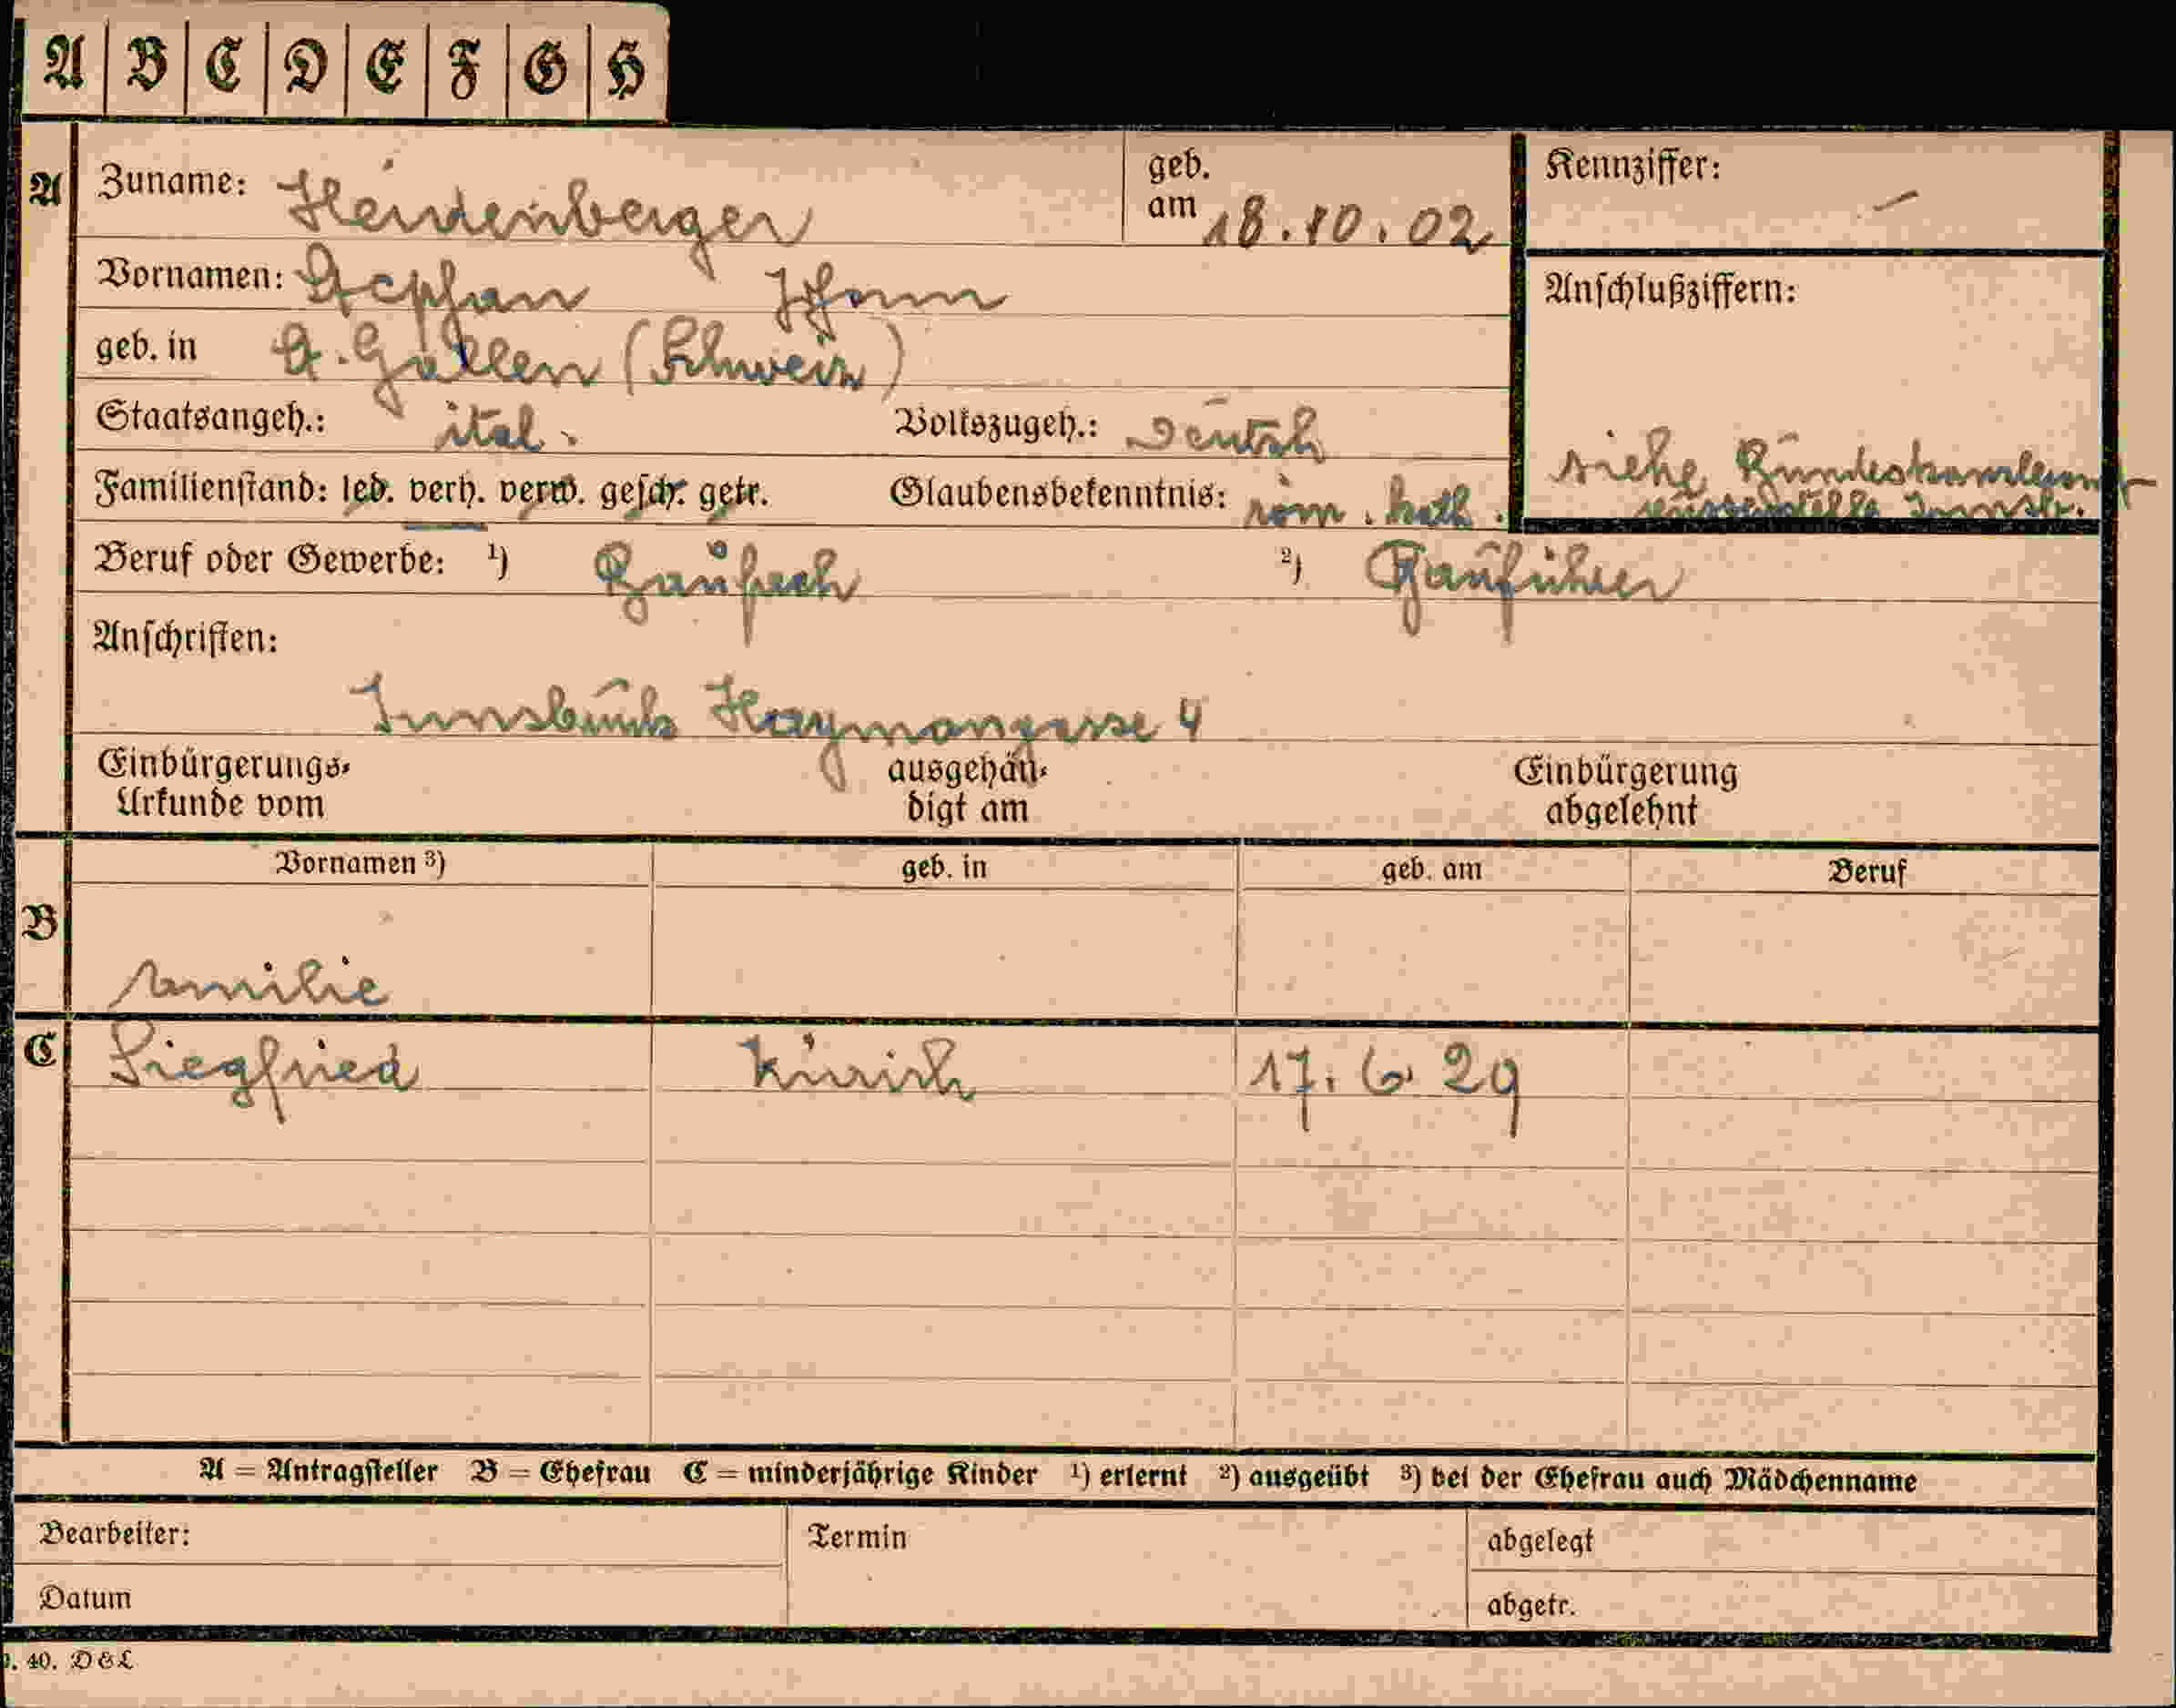 A B C D E F G H
A Zuname: Heidenberger geb. am 18.10.02 Kennziffer: –
Vornamen: Stephan Johann Anschlußziffern:
geb. in St. Gallen (Schweiz)
Staatsangeh.: ital. Volkszugeh.: Deutsch
siehe Bundeskanzleramt
Familienstand: led. verh. verw. gesch. getr. Glaubensbekenntnis: röm. kath. Innsbr.
Beruf oder Gewerbe: 1) 2)
Anschriften:
Innsbruck Haymongasse 4
Einbürgerungs-Urkunde vom ausgehändigt am Einbürgerung abgelehnt
Vornamen 3) geb. in geb. am Beruf
B
Familie
C Siegfried Zürich 17. 6. 29
A = Antragsteller B = Ehefrau C = minderjährige Kinder 1) erlernt 2) ausgeübt 3) bei der Ehefrau auch Mädchenname
Bearbeiter: Termin abgelegt
Datum abgetr.
40. D & L